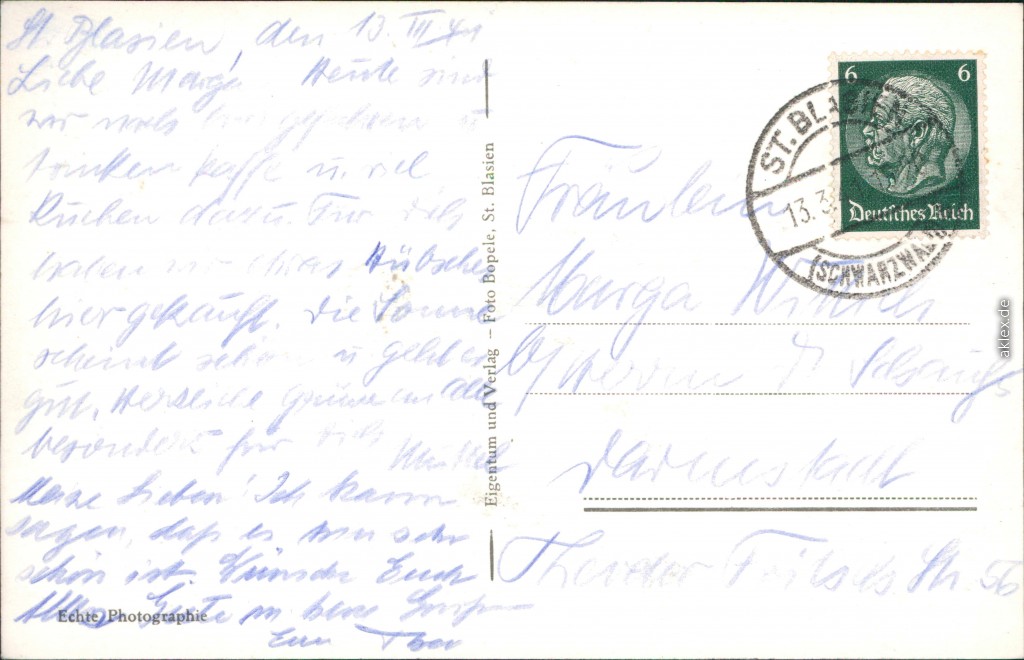 St. Blasien, den 13. III 41
Liebe Marga Heute sind
wir
trinken Kaffe u. viel
Kuchen dazu. Für Dich
haben wir etwas Hübsches
hier gekauft. Die Sonne
scheint schön u.
gut. Herzliche Grüsse an Alle
besonders für Dich
Meine Lieben! Ich kann
sagen, daß es nun sehr
schön ist. Wünsche Euch
Alles Gute
Echte Photographie
Eigentum und Verlag – Foto Bopele, St. Blasien
6 6
Deutsches Reich
ST. BLASIEN
13.3.
(SCHWARZWALD)
Fräulein
Marga
b/Herrn
Darmstadt
Theodor Fritsch Str. 56
aklex.de